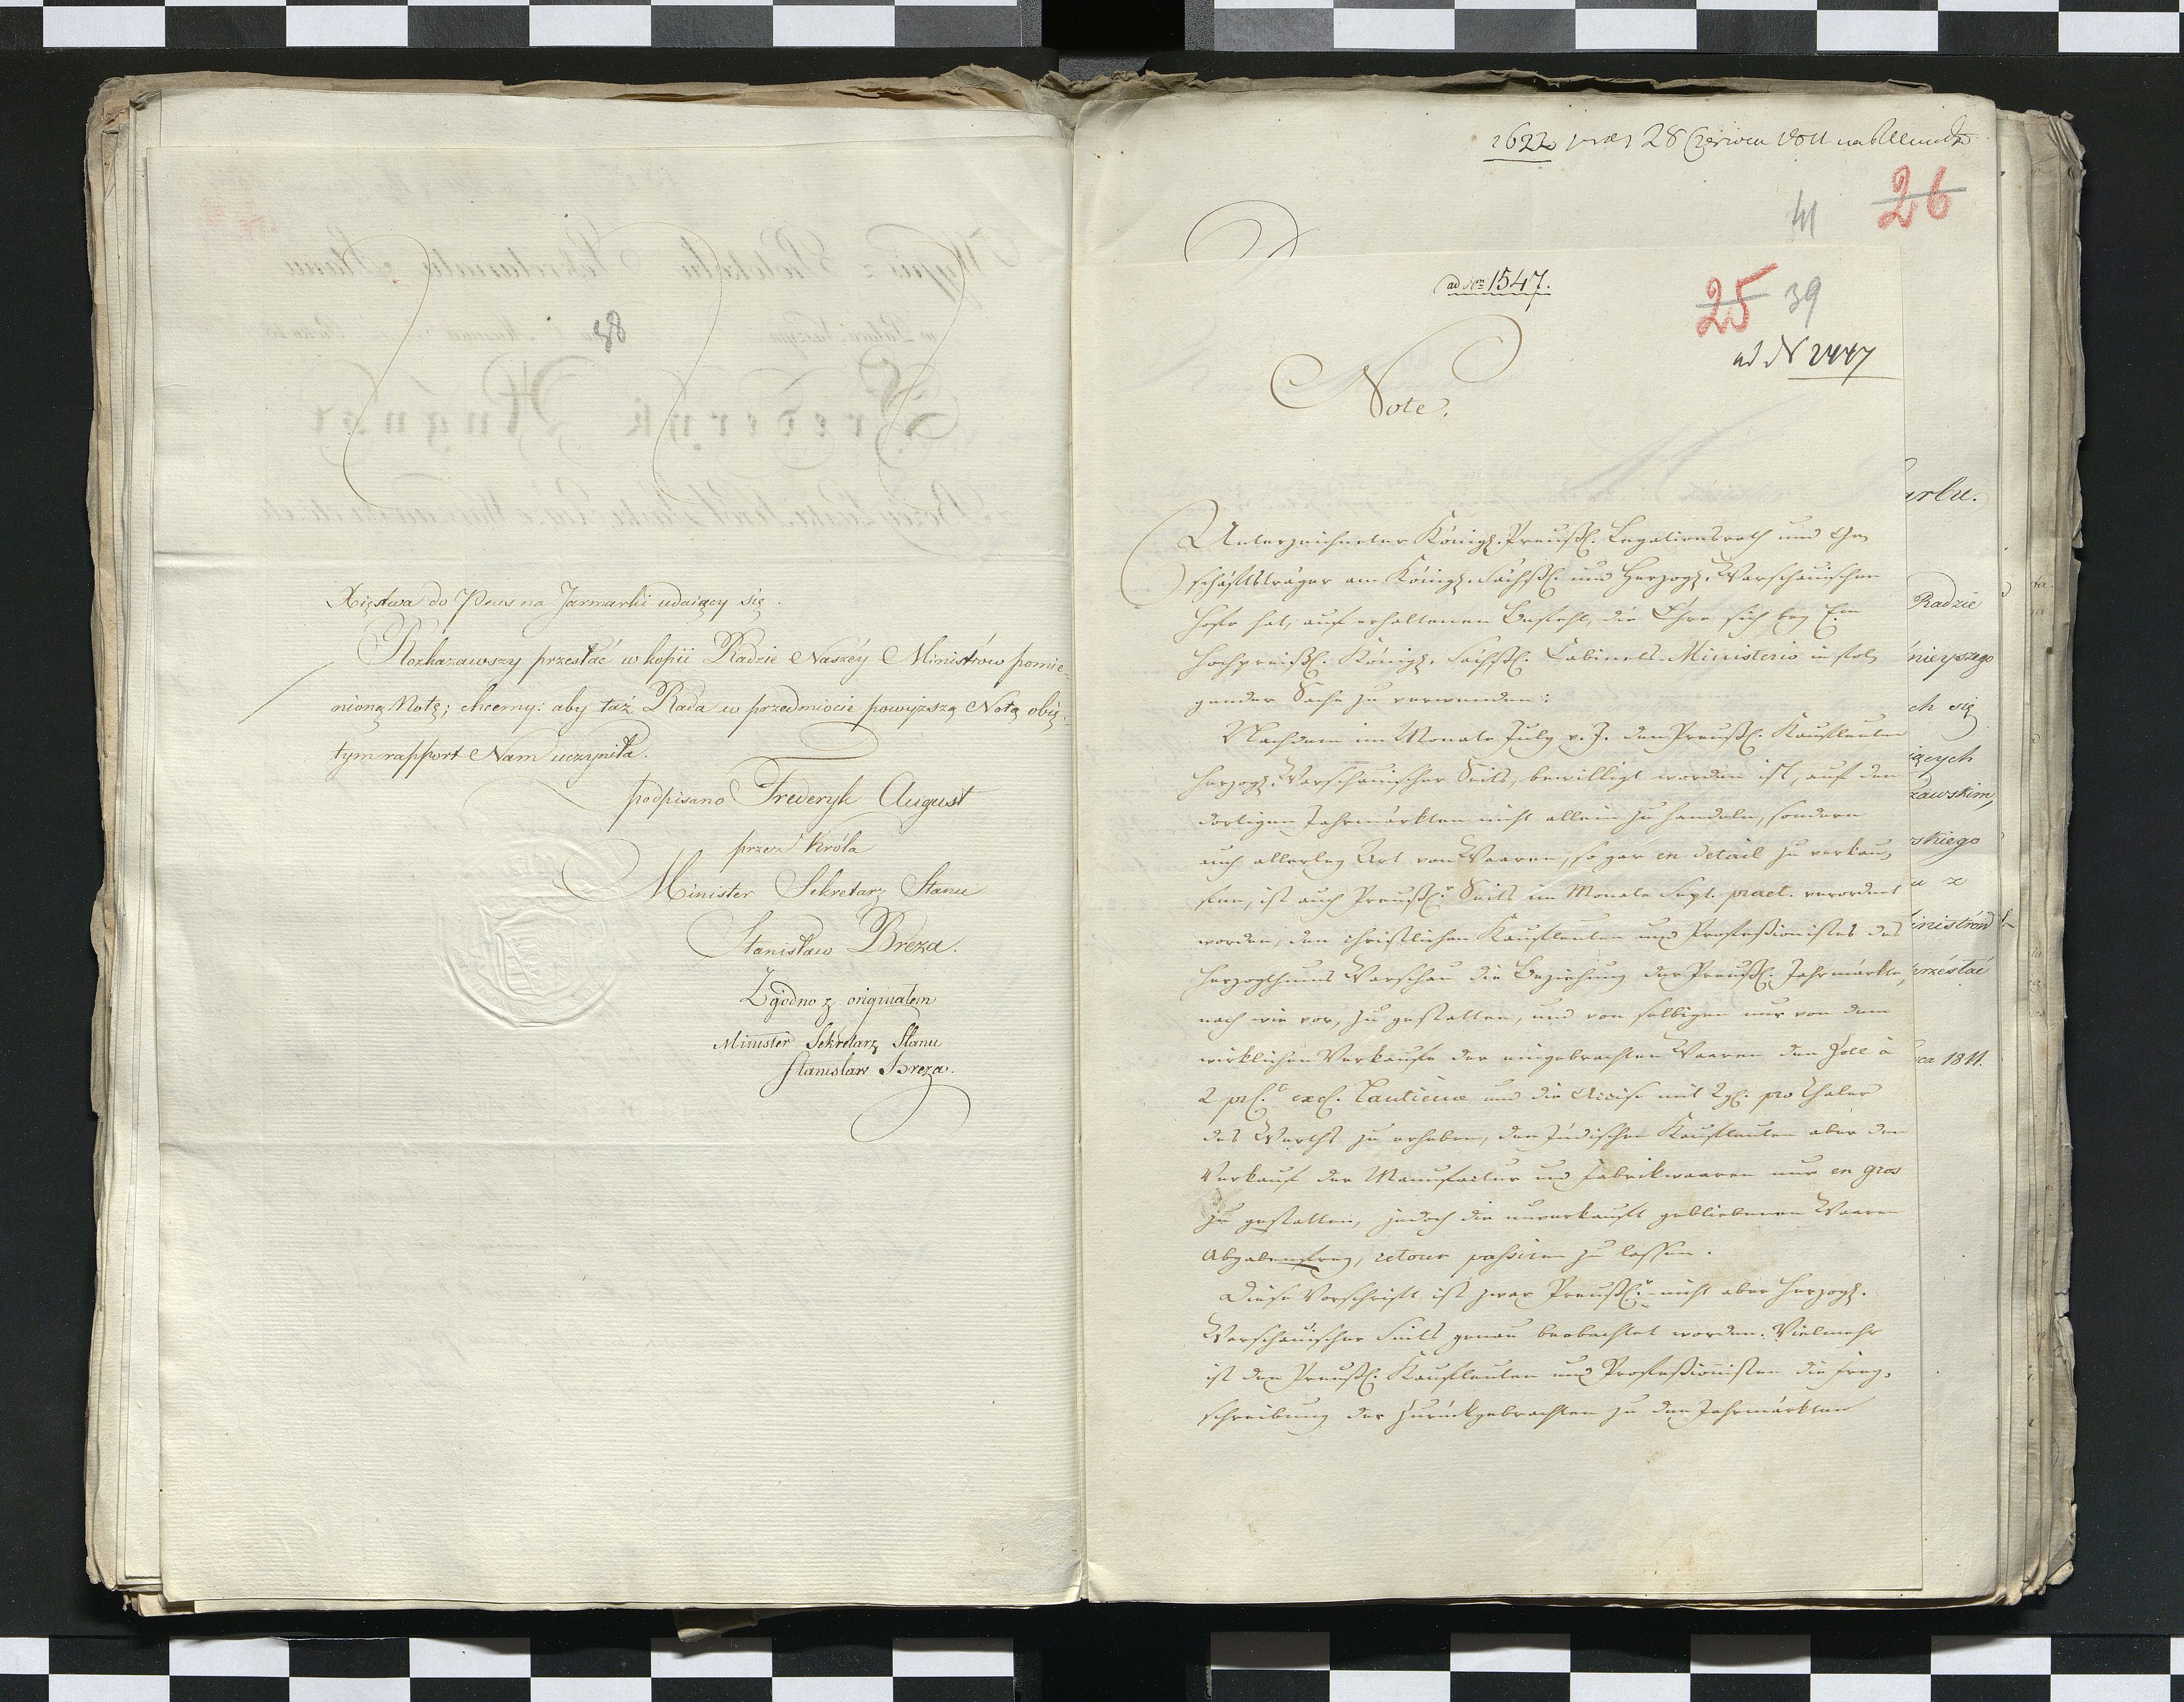 38
Xięstwa do Prus na Jarmarki udaiący się.
Rozkazawszy przesłać w kopii Radzie Naszéy Ministrów pomie-
nioną Notę; chcemy: aby taż Rada w przedmiocie powyższą Notą obię-
tym rapport Nam uczyniła.
podpisano Frederyk August
przez Króla
Minister Sekretarz Stanu
Stanisław Breza.
Zgodno z originałem
Minister Sekretarz Stanu
Stanisław Breza.
1622 28 Czerwca 1811
41 26
ad Nrm 1547.
25 39
ad N 2447
Note.
Unterzeichneter Königl. Preußl. Legationsrath und Ge-
schäftsträger am Königl. Sächßl. und Herzogl. Warschauischen
Hofe hat, auf erhaltenen Befehl, die Ehre sich bey E.
Hochpreißl. Königl. Sächßl. Cabinets-Ministerio in fol-
gender Sache zu verwenden:
Nachdem im Monate July v. J. den Preußl. Kaufleuten
Herzogl. Warschauischer Seits, bewilligt worden ist, auf den
dortigen Jahrmärkten nicht allein zu handeln, sondern
auch allerley Art von Waaren, so gar en detail zu verkau-
fen, ist auch Preußl.r Seits im Monate Sept. praet. verordnet
worden, den christlichen Kaufleuten und Profeßionisten des
Herzogthums Warschau die Beziehung der Preußl. Jahrmärkte,
nach wie vor, zu gestatten, und von selbigen nur von dem
wirklichen Verkaufe der eingebrachten Waaren den Zoll à
2 prC.t excl. Tantieme und die Accise mit 2 gl. pro Thaler
des Werths zu erheben, den Jüdischen Kaufleuten aber den
Verkauf der Manufactur und Fabrikwaaren nur en gros
zu gestatten, jedoch die unverkauft gebliebenen Waaren
Abgabenfrey, retour passiren zu lassen.
Diese Vorschrift ist zwar Preußl.r nicht aber Herzogl.
Warschauischer Seits genau beobachtet worden. Vielmehr
ist den Preußl. Kaufleuten und Profeßionisten die Frey-
schreibung der zurückgebrachten zu den Jahrmärkten
Radzie
ch się
skiego